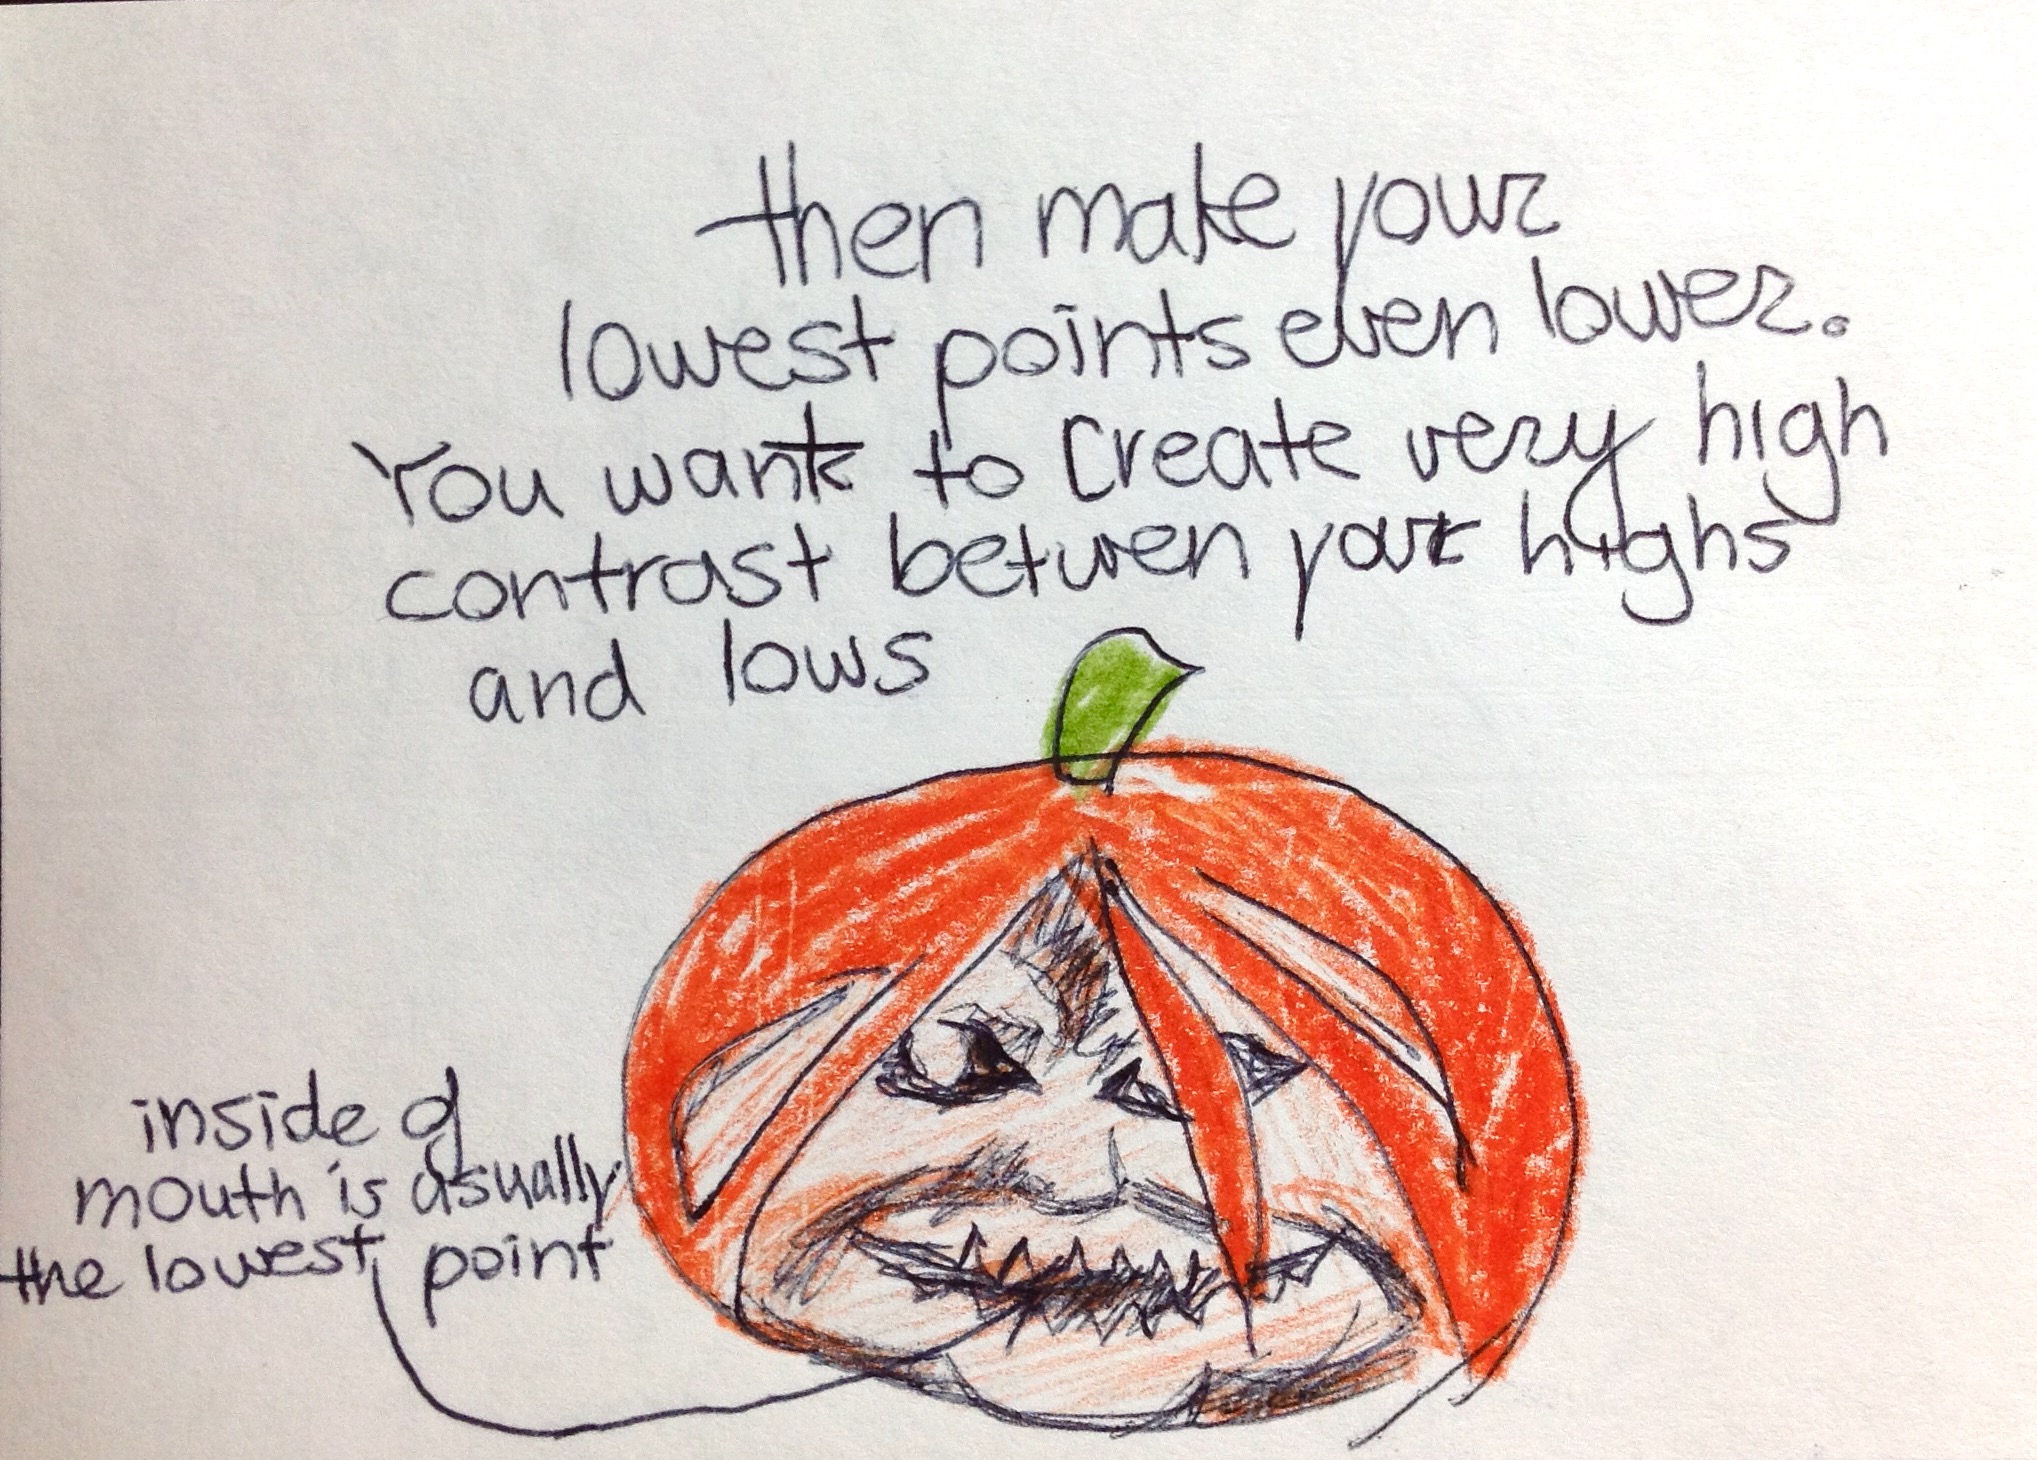 then make your
lowest points even lower.
You want to create very high
contrast between your highs
and lows
inside of
mouth is usually
the lowest point